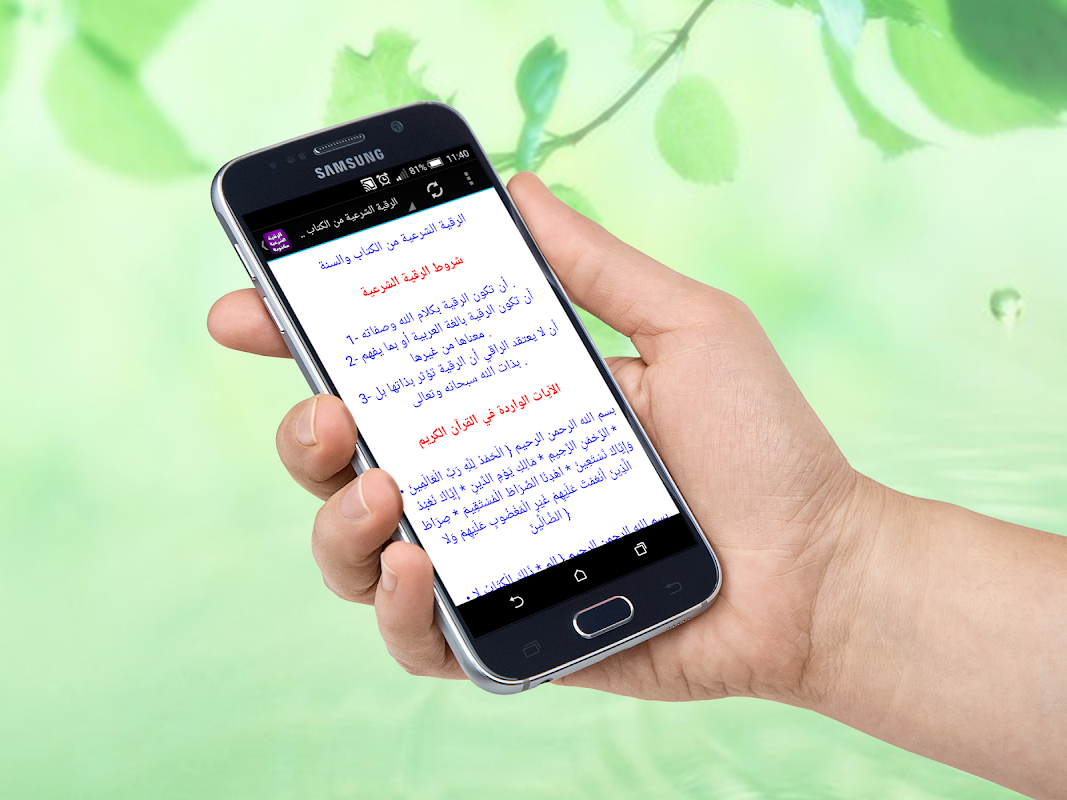 SAMSUNG
81% 11:40
الرقية الشرعية من الكتاب ..
الرقية
الشرعية
مكتوبة
الرقية الشرعية من الكتاب والسنة
شروط الرقية الشرعية
1- أن تكون الرقية بكلام الله وصفاته .
2- أن تكون الرقية بالغة العربية أو بما يفهم
معناها من غيرها .
3- أن لا يعتقد الراقي أن الرقية تؤثر بذاتها بل
بذات الله سبحانه وتعالى .
الآيات الواردة في القرآن الكريم
• بسم الله الرحمن الرحيم { الْحَمْدُ لِلَّهِ رَبِّ الْعَالَمِينَ
* الرَّحْمَٰنِ الرَّحِيمِ * مَالِكِ يَوْمِ الدِّينِ * إِيَّاكَ نَعْبُدُ
وَإِيَّاكَ نَسْتَعِينُ * اهْدِنَا الصِّرَاطَ الْمُسْتَقِيمَ * صِرَاطَ
الَّذِينَ أَنْعَمْتَ عَلَيْهِمْ غَيْرِ الْمَغْضُوبِ عَلَيْهِمْ وَلَا
الضَّالِّينَ }
• بسم الله الرحمن الرحيم { الم * ذَٰلِكَ الْكِتَابُ لَا